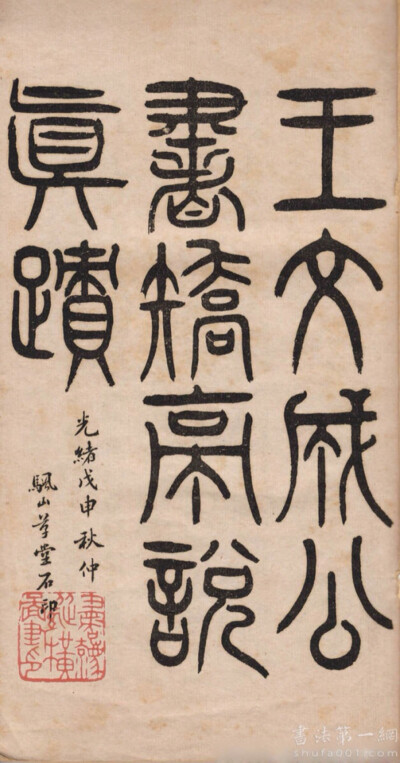 王文成公
書矯亭說
眞蹟
光緒戊申秋仲
颿山草堂石印
書法第一網
shufa001.com